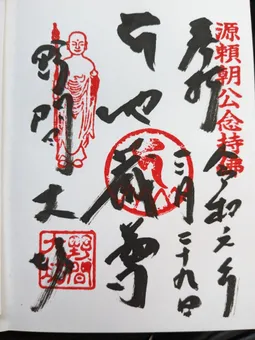 源頼朝公念持佛
奉拝 令和
月二十九日
地蔵尊
野間大坊
野間大坊